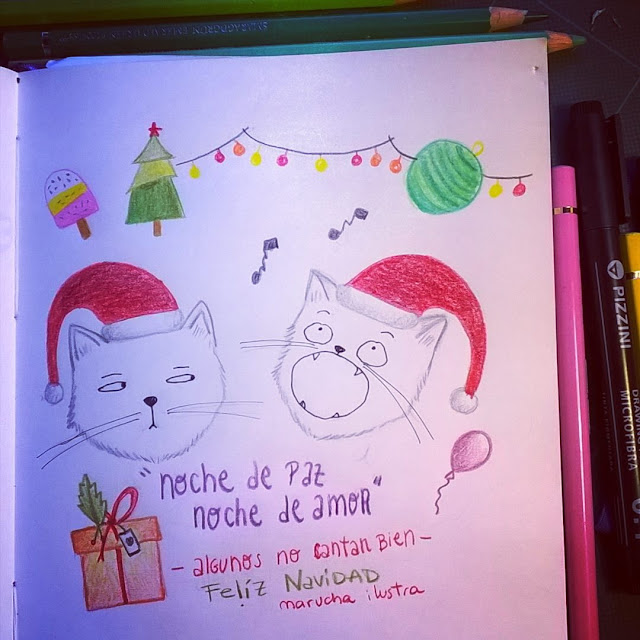 "noche de paz
noche de amor"
- algunos no cantan bien -
Feliz Navidad
marucha ilustra
PIZZINI
MICROFIBRA